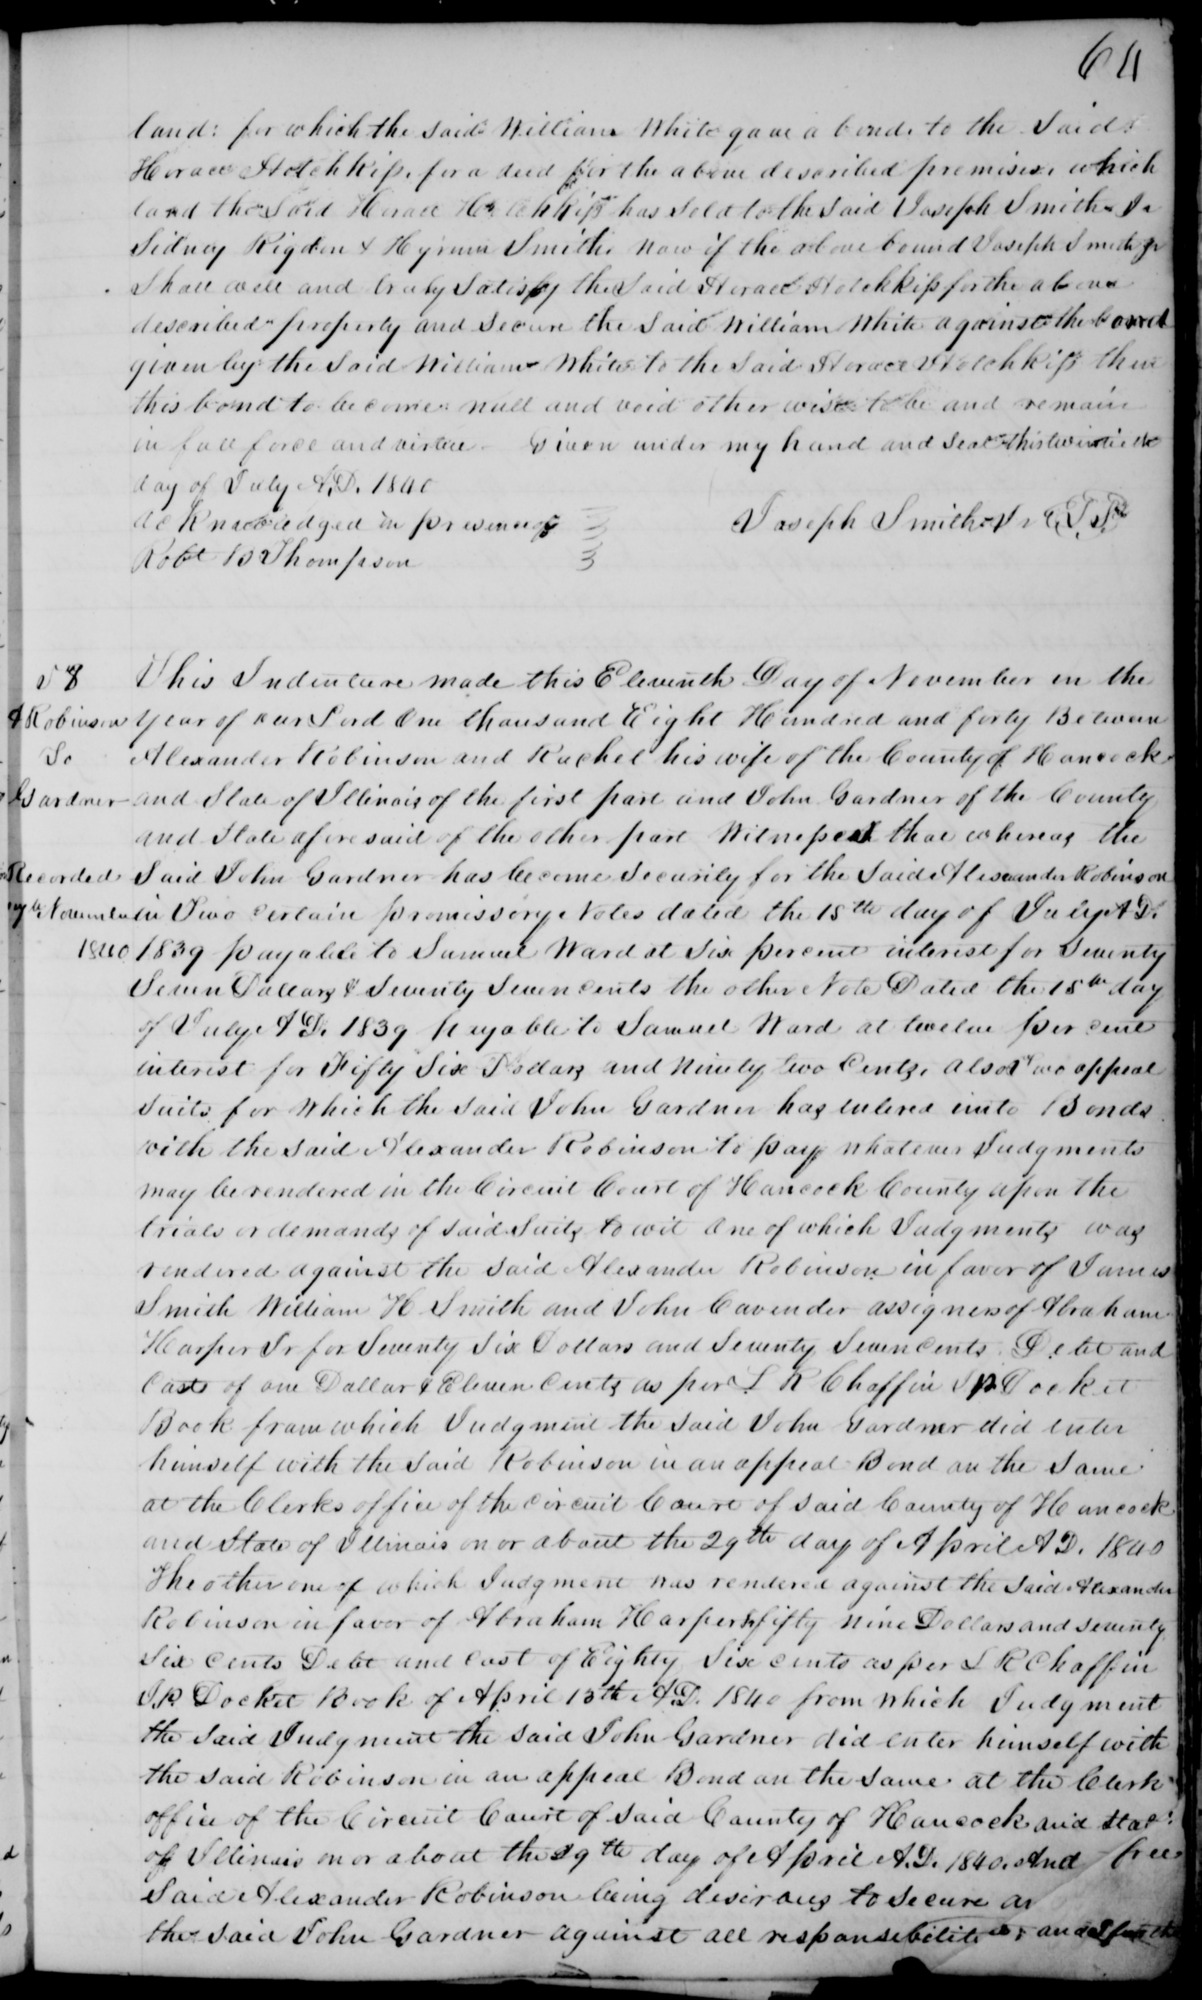 64
land: for which the said William White gave a bond to the Said
Horace Hotchkiss for a deed for the above described premises which
land the Said Horace Hotchkiss has sold to the said Joseph Smith Jr
Sidney Rigdon & Hyrum Smith. Now if the above bound Joseph Smith Jr
Shall well and truly Satisfy the Said Horace Hotchkiss for the above
described property and Secure the Said William White against the bond
given by the Said William White to the Said Horace Hotchkiss then
this bond to become null and void other wise to be and remain
in full force and virtue - Given under my hand and Seal this twentieth
day of July A.D. 1840
Acknowledged in presence of
Joseph Smith Jr
Robt B Thompson
58
This Indenture made this Eleventh Day of November in the
A Robinson year of our Lord One thousand Eight Hundred and forty Between
To Alexander Robinson and Rachel his wife of the County of Hancock
J Gardner and State of Illinois of the first part and John Gardner of the County
and State aforesaid of the other part Witnesseth that whereas the
Recorded Said John Gardner has become Security for the Said Alexander Robinson
November in Two certain promissory Notes dated the 15th day of July A.D.
1840 1839 payable to Samuel Ward at Six percent interest for Seventy
Seven Dollars & Seventy Seven cents the other Note Dated the 15th day
of July A D. 1839 payable to Samuel Ward at twelve per cent
interest for Fifty Six Dollars and Ninety two Cents, also Two appeal
Suits for which the said John Gardner has entered into Bonds
with the said Alexander Robinson to pay whatever Judgments
may be rendered in the Circuit Court of Hancock County upon the
trials or demands of said Suits to wit One of which Judgments was
rendered against the said Alexander Robinson in favor of James
Smith William H Smith and John Cavender assignees of Abraham
Harper Sr for Seventy Six Dollars and Seventy Seven cents Debt and
Costs of one Dollar & Eleven cents as per L R Chaffin J P Docket
Book from which Judgment the said John Gardner did enter
himself with the said Robinson in an appeal Bond on the Same
at the Clerks office of the circuit Court of said County of Hancock
and State of Illinois on or about the 29th day of April A D. 1840
The other one of which Judgment was rendered against the said Alexander
Robinson in favor of Abraham Harper fifty nine Dollars and seventy
Six cents Debt and cost of Eighty Six cents as per L R Chaffin
J.P. Docket Book of April 13th A.D. 1840 from which Judgment
the said Judgment the said John Gardner did enter himself with
the said Robinson in an appeal Bond on the same at the Clerk
office of the Circuit Court of said County of Hancock and State
of Illinois on or about the 29th day of April A.D. 1840. And
Said Alexander Robinson being desirous to secure free
the said John Gardner against all responsibilities and